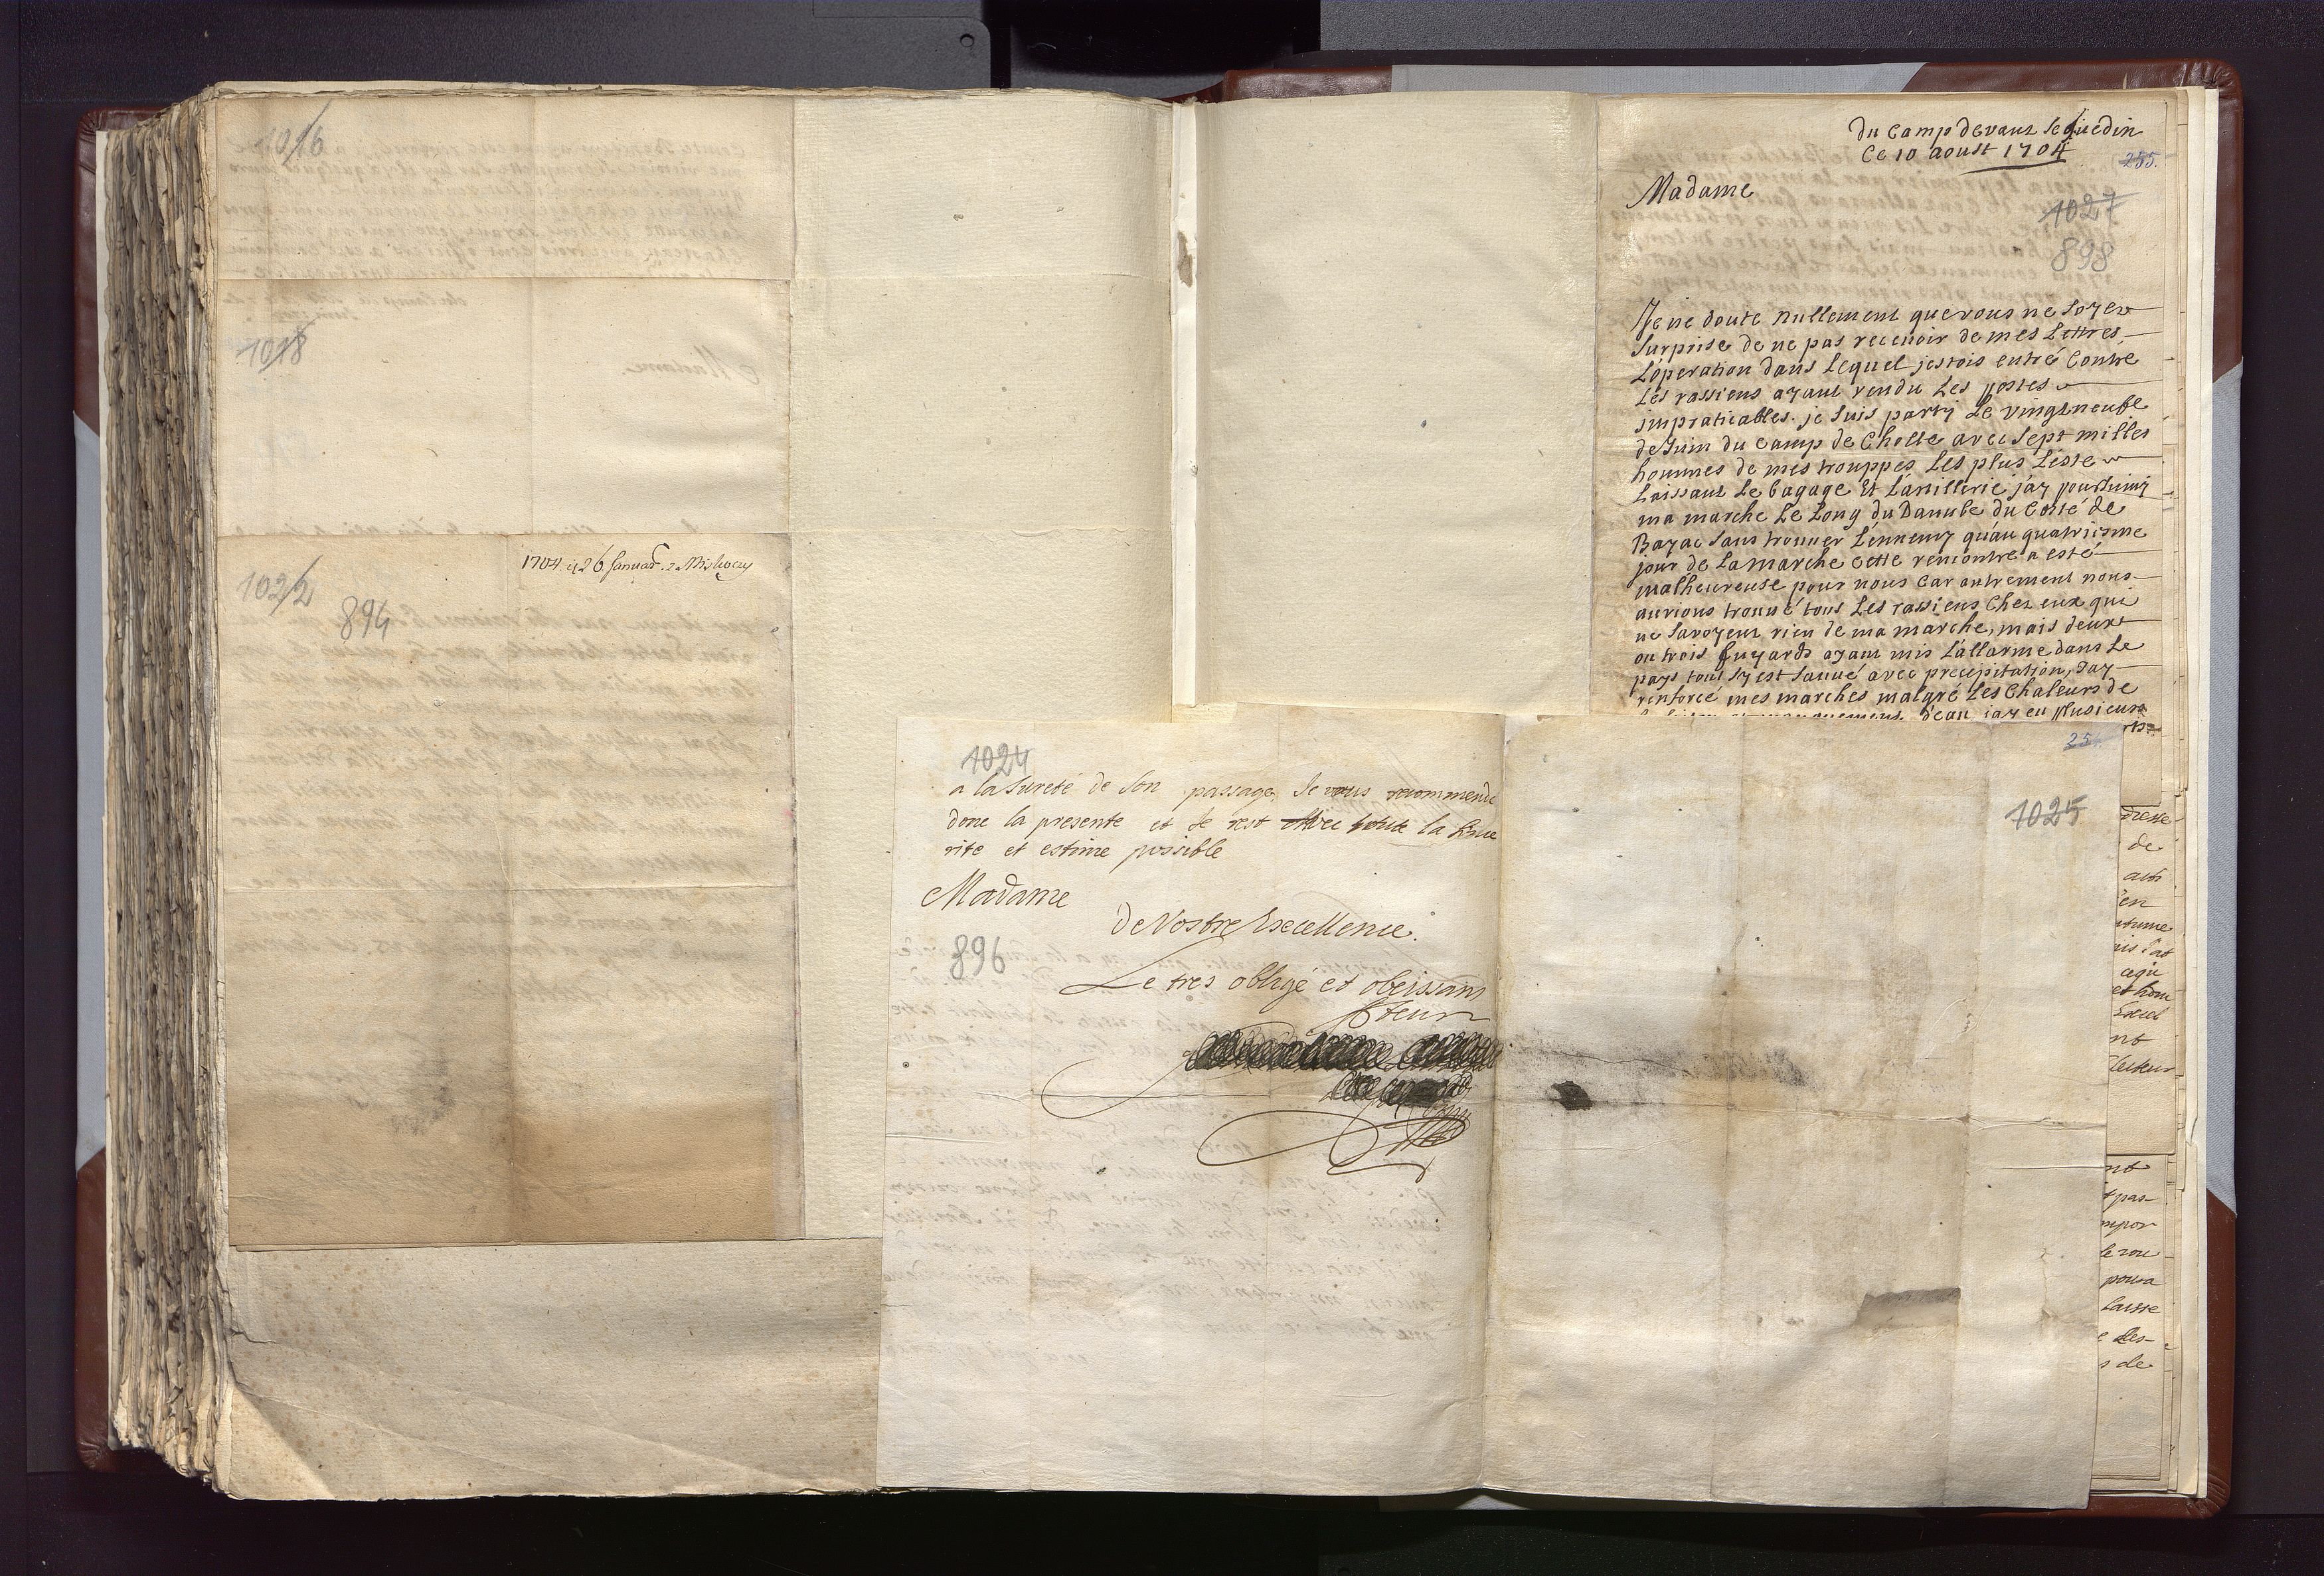 1016
1018
Madame
1022
894
1704. d 26 Januar. a Miskocz
1024
a la sureté de son passage, Je vous recommende
donc la presente et Je rest avec toute la since
rite et estime possible
Madame
896
de Vostre Excellence.
Le tres obligé et obeissant
du Camp devant Seguedin
Ce 10 aoust 1704
255.
Madame
1027
898
Je ne doute nullement que vous ne soyez
surprise de ne pas recevoir de mes Lettres,
L'operation dans Lequel j'estois entré Contre
Les rassiens ayant rendu Les postes
impraticables. je suis party Le vingt neufe
de Juin du Camp de Cholte avec sept milles
hommes de mes trouppes Les plus Leste
Laissant Le bagage Et Lartillerie j'ay poursuivy
ma marche Le Long du Danube du Costé de
Bazac sans trouver L'ennemy qu'au quatriesme
jour de La marche cette rencontre a esté
malheureuse pour nous Car autrement nous
aurions trouvé tous Les rassiens Chez eux qui
ne savoyent rien de ma marche, mais deux
ou trois fuyards ayant mis L'allarme dans Le
pays tout s'y est sauvé avec precipitation, J'ay
renforcé mes marches malgré Les Chaleurs de
d'eau j'ay eu plusieurs
25
1025
de
en
et hom
nt
nt
pas-
Laisse
des-
s de